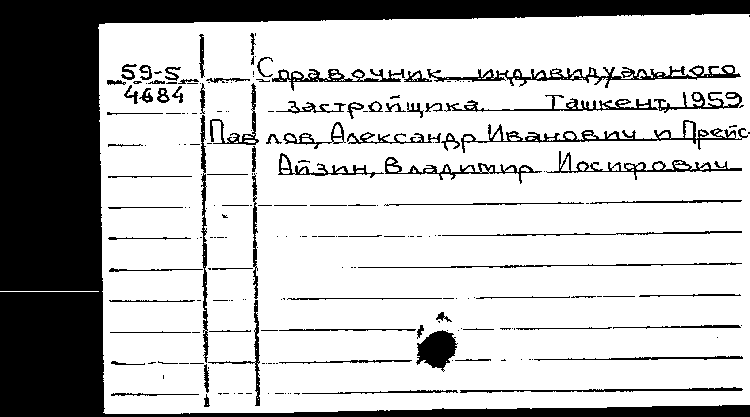 59-5
4684
Справочник индивидуального
застройщика. Ташкент, 1959
Павлов, Александр Иванович и Прейс-
Айзин, Владимир Иосифович